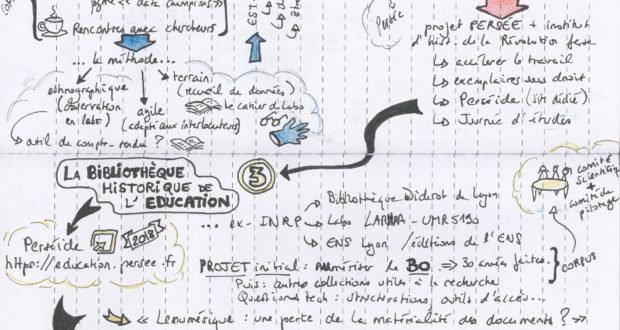 Rencontres avec chercheurs
... la méthode...
ethnographique
(observation
en labo)
agile
(adapté aux interlocuteurs)
terrain
(recueil de données)
le cahier de labo
outil de compte-rendu ?
projet PERSÉE + institut
d'hist. de la Révolution fcse
↳ accélérer le travail
↳ exemplaires sans droit
↳ Perséide (site dédié)
↳ Journée d'études
LA BIBLIOTHÈQUE
HISTORIQUE DE
L'EDUCATION
3
Perséide
2018
https://education.persee.fr
... ex- INRP
Bibliothèque Diderot de Lyon
Labo LARHRA - UMR 5190
ENS Lyon / éditions de l'ENS
comité
scientifique
+
comité de
pilotage
PROJET initial : numériser le BO => 30 années faites.
Puis : autres collections utiles à la recherche
Questions tech : structurations, outils d'accès...
CORPUS
« Le numérique : une perte de la matérialité des documents ? »